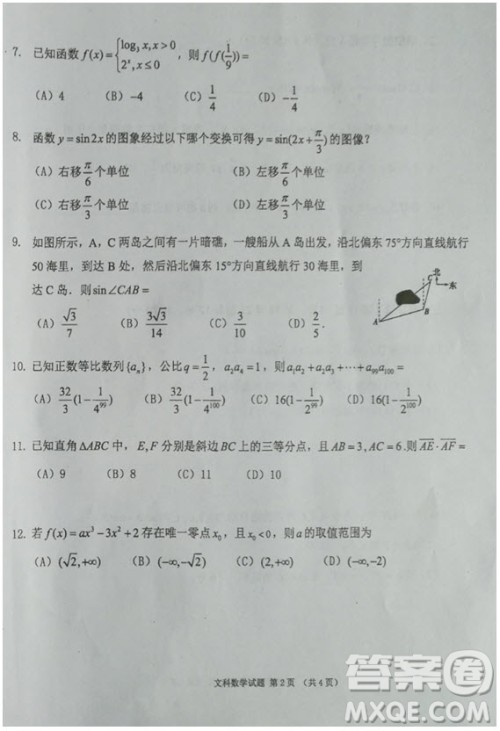 7. 已知函数 f(x)={log₃x, x>0; 2ˣ, x≤0}, 则 f(f(1/9))=
(A) 4 (B) -4 (C) 1/4 (D) -1/4
8. 函数 y=sin2x 的图象经过以下哪个变换可得 y=sin(2x+π/3) 的图像?
(A) 右移 π/6 个单位 (B) 左移 π/6 个单位
(C) 右移 π/3 个单位 (D) 左移 π/3 个单位
9. 如图所示, A, C 两岛之间有一片暗礁, 一艘船从 A 岛出发, 沿北偏东 75°方向直线航行
50 海里, 到达 B 处, 然后沿北偏东 15°方向直线航行 30 海里, 到
达 C 岛. 则 sin∠CAB=
北
东
C
A
B
(A) √3/7 (B) 3√3/14 (C) 3/10 (D) 2/5.
10. 已知正数等比数列{aₙ}, 公比 q=1/2, a₂a₄=1, 则 a₁a₂+a₂a₃+⋯+a₉₉a₁₀₀=
(A) 32/3(1-1/4⁹⁹) (B) 32/3(1-1/4¹⁰⁰) (C) 16(1-1/2⁹⁹) (D) 16(1-1/2¹⁰⁰)
11. 已知直角 ΔABC 中, E, F 分别是斜边 BC 上的三等分点, 且 AB=3, AC=6. 则 AE·AF=
(A) 9 (B) 8 (C) 11 (D) 10
12. 若 f(x)=ax³-3x²+2 存在唯一零点 x₀, 且 x₀<0, 则 a 的取值范围为
(A) (√2,+∞) (B) (-∞,-√2) (C) (2,+∞) (D) (-∞,-2)
文科数学试题 第 2 页 (共 4 页)
答案圈
MXQE.COM